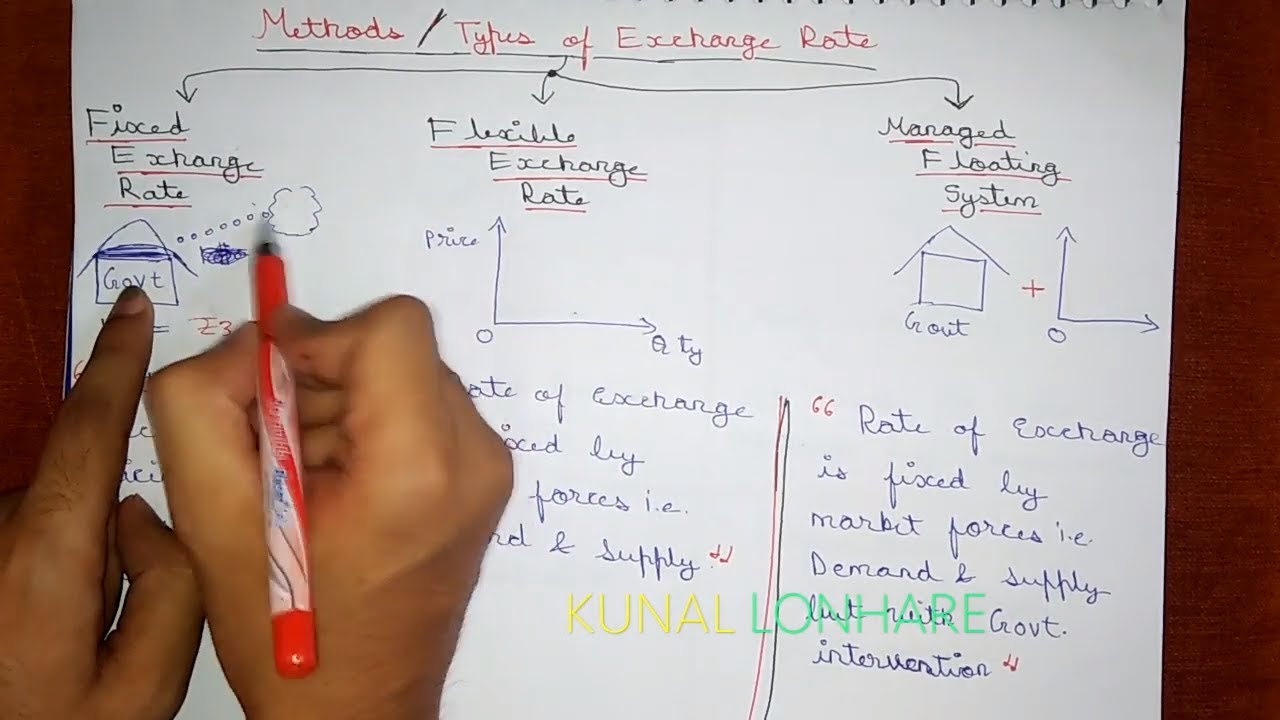 Methods / Types of Exchange Rate
Fixed
Exchange
Rate
Govt
=
Flexible
Exchange
Rate
Price
O
Qty
of Exchange
by
forces i.e.
& supply."
Managed
Floating
System
Govt
+
O
" Rate of Exchange
is fixed by
market forces i.e.
Demand & supply
but with Govt.
intervention "
KUNAL LONHARE